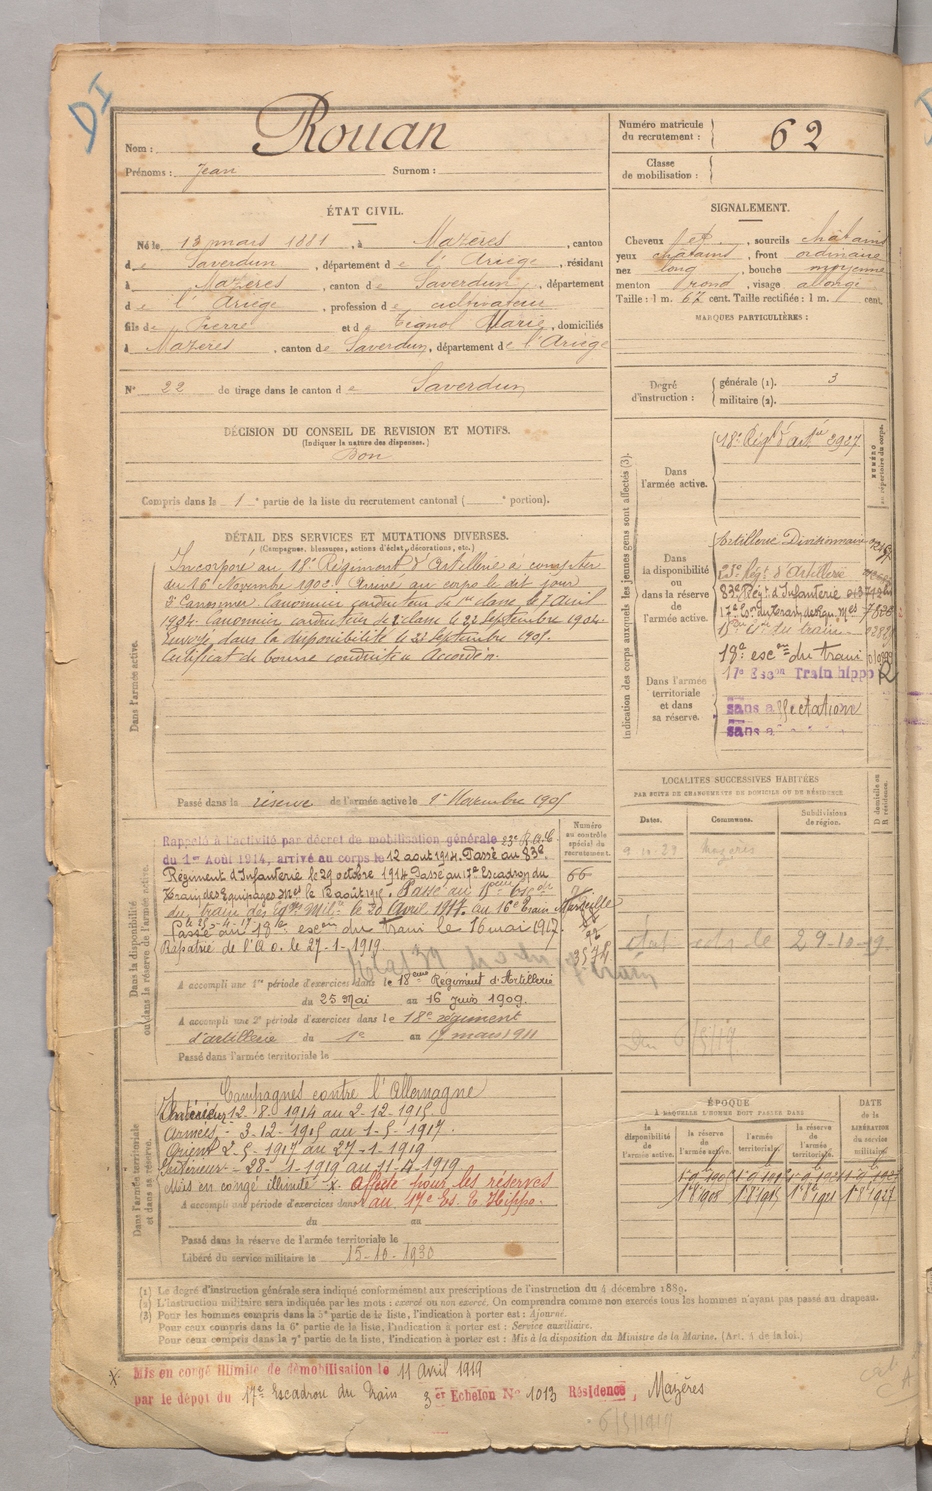 DI
Nom : Rouan
Prénoms : Jean Surnom :
Numéro matricule du recrutement : 62
Classe de mobilisation :
ÉTAT CIVIL.
Né le 13 mars 1881, à Mazères, canton
de Saverdun, département de l'Ariège, résidant
à Mazères, canton de Saverdun, département
de l'Ariège, profession de cultivateur
fils de Pierre et de Tignol Marie, domiciliés
à Mazères, canton de Saverdun, département de l'Ariège
N° 22 de tirage dans le canton de Saverdun
SIGNALEMENT.
Cheveux et, sourcils châtains
yeux châtains, front ordinaire
nez long, bouche moyenne
menton rond, visage allongé
Taille : 1 m. 67 cent. Taille rectifiée : 1 m. cent.
MARQUES PARTICULIÈRES :
Degré d'instruction :
générale (1). 3
militaire (2).
DÉCISION DU CONSEIL DE REVISION ET MOTIFS.
(Indiquer la nature des dispenses.)
Bon
Compris dans la 1e partie de la liste du recrutement cantonal ( e portion).
DÉTAIL DES SERVICES ET MUTATIONS DIVERSES.
(Campagnes, blessures, actions d'éclat, décorations, etc.)
Dans l'armée active.
Incorporé au 18e Régiment d'Artillerie à compter
du 16 Novembre 1902. Arrivé au corps le dit jour
2e Canonnier. Canonnier conducteur de 1re classe le 7 Avril
1904. Canonnier conducteur de 2e classe le 22 septembre 1904.
Envoyé dans la disponibilité le 23 septembre 1905.
Certificat de bonne conduite « Accordé ».
Passé dans la réserve de l'armée active le 1er Novembre 1905
Indication des corps auxquels les jeunes gens sont affectés (3).
NUMÉRO au répertoire du corps.
Dans l'armée active.
18e Régt d'artie 2927
Dans la disponibilité ou dans la réserve de l'armée active.
Artillerie Divisionnaire
23e Régt d'Artillerie
83e Régt d'Infanterie
17e
du train
18e escon du train
17e Escon Train hippo
Dans l'armée territoriale et dans sa réserve.
sans affectation
sans a
LOCALITÉS SUCCESSIVES HABITÉES
PAR SUITE DE CHANGEMENTS DE DOMICILE OU DE RÉSIDENCE
Dates. Communes. Subdivisions de région. D domicile ou R résidence.
9.10.29 Mazères
29-10-19
Dans la disponibilité ou dans la réserve de l'armée active.
Numéro au contrôle spécial du recrutement.
Rappelé à l'activité par décret de mobilisation générale 23e R.A.C
du 1er Août 1914, arrivé au corps le 12 aout 1914. Passé au 83e
Régiment d'Infanterie le 29 octobre 1914. Passé au 17e Escadron du
Train des Equipages Mres le 13 août 1915. Passé au 15eme Escon
du train des Eqges Milres le 30 Avril 1917. au 16e Train Marseille
Passé au 18e escon du train le 16 mai 1917.
Rapatrié de l'A.O. le 27-1-1919
66
92
3574
A accompli une 1re période d'exercices dans le 18eme Régiment d'Artillerie
du 25 Mai au 16 Juin 1909.
A accompli une 2e période d'exercices dans le 18e régiment
d'artillerie du 1er au 17 mars 1911
Passé dans l'armée territoriale le
Dans l'armée territoriale et dans sa réserve.
Campagnes contre l'Allemagne
Intérieur 12-8-1914 au 2-12-1915
Armées - 3-12-1915 au 1-5-1917.
Orient 2-5-1917 au 27-1-1919
Intérieur - 28-1-1919 au 11-4-1919
Mis en congé illimité X. Affecté pour les réserves
A accompli une période d'exercices dans le au 17e Es. T. Hippo.
du au
Passé dans la réserve de l'armée territoriale le
Libéré du service militaire le 15-10-1930
ÉPOQUE
À LAQUELLE L'HOMME DOIT PASSER DANS
DATE de la LIBÉRATION du service militaire.
la disponibilité de l'armée active. la réserve de l'armée active. l'armée territoriale. la réserve de l'armée territoriale.
(1) Le degré d'instruction générale sera indiqué conformément aux prescriptions de l'instruction du 4 décembre 1889.
(2) L'instruction militaire sera indiquée par les mots : exercé ou non exercé. On comprendra comme non exercés tous les hommes n'ayant pas passé au drapeau.
(3) Pour les hommes compris dans la 5e partie de la liste, l'indication à porter est : Ajourné.
Pour ceux compris dans la 6e partie de la liste, l'indication à porter est : Service auxiliaire.
Pour ceux compris dans la 7e partie de la liste, l'indication à porter est : Mis à la disposition du Ministre de la Marine. (Art. 4 de la loi.)
X Mis en congé illimité de démobilisation le 11 Avril 1919
par le dépot du 17e Escadron du Train 3er Echelon No 1013 Résidence, Mazères
6/5/1917